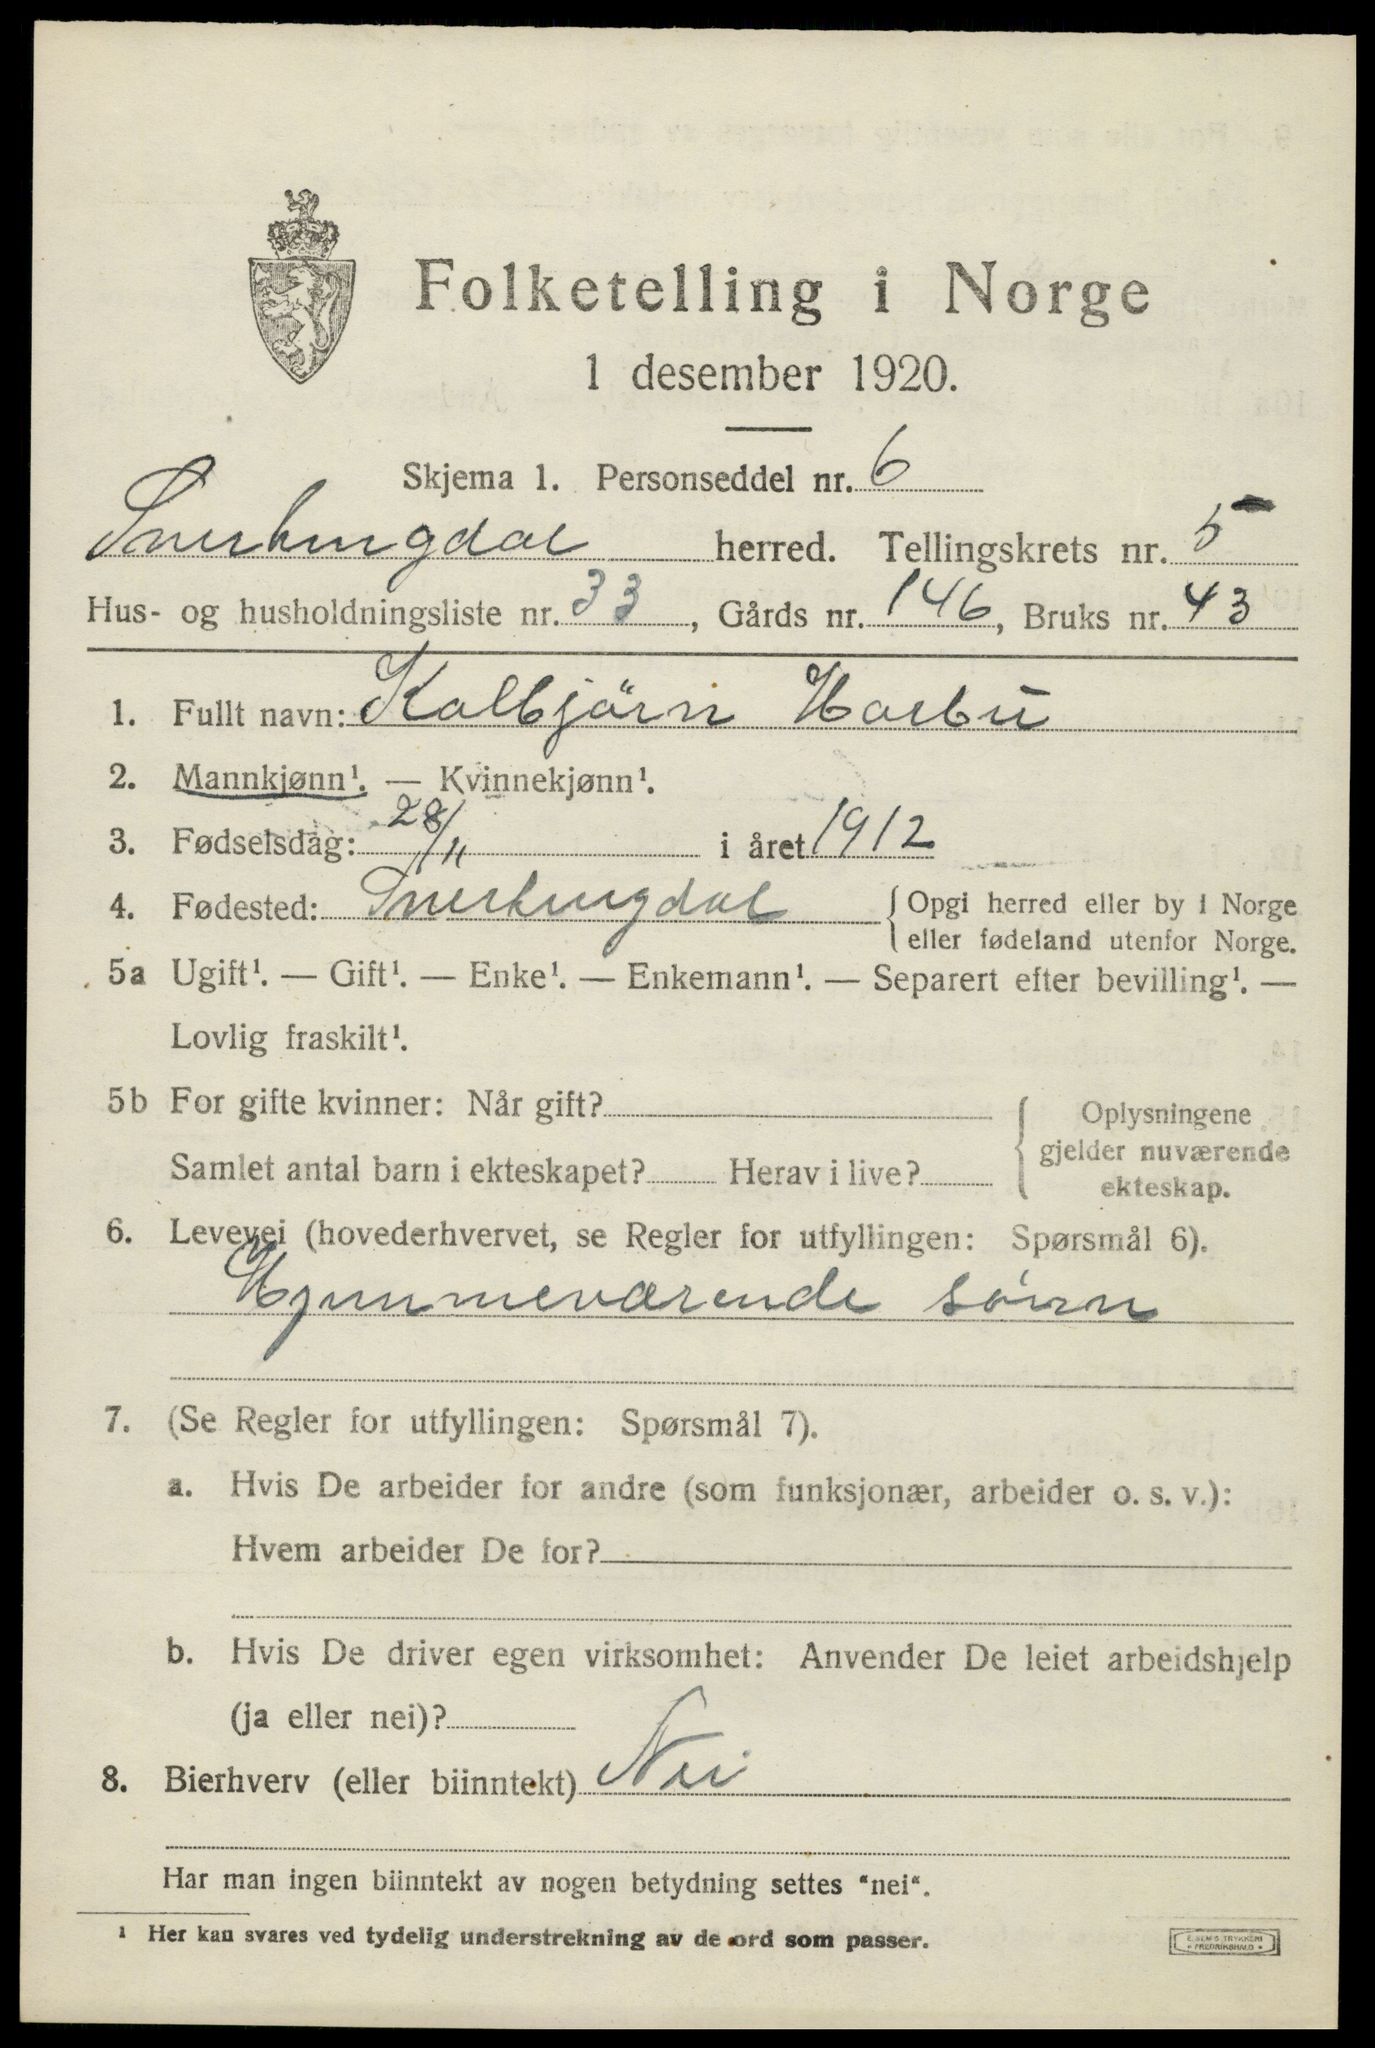 Folketelling i Norge
1 desember 1920.
Skjema 1. Personseddel nr. 6
Snertingdal herred. Tellingskrets nr. 5
Hus- og husholdningsliste nr. 33, Gårds nr. 146, Bruks nr. 43
1. Fullt navn: Kolbjörn Horbu
2. Mannkjønn¹. — Kvinnekjønn¹.
3. Fødselsdag: 28/11 i året 1912
4. Fødested: Snertingdal { Opgi herred eller by i Norge
eller fødeland utenfor Norge.
5a Ugift¹. — Gift¹. — Enke¹. — Enkemann¹. — Separert efter bevilling¹. —
Lovlig fraskilt¹.
5b For gifte kvinner: Når gift? { Oplysningene
gjelder nuværende
Samlet antal barn i ekteskapet? Herav i live? ekteskap.
6. Levevei (hovederhvervet, se Regler for utfyllingen: Spørsmål 6).
Hjemmeværende sönn
7. (Se Regler for utfyllingen: Spørsmål 7).
a. Hvis De arbeider for andre (som funksjonær, arbeider o. s. v.):
Hvem arbeider De for?
b. Hvis De driver egen virksomhet: Anvender De leiet arbeidshjelp
(ja eller nei)?
8. Bierhverv (eller biinntekt) Nei
Har man ingen biinntekt av nogen betydning settes "nei".
¹ Her kan svares ved tydelig understrekning av de ord som passer.
E. SEM'S TRYKKERI
FREDRIKSHALD